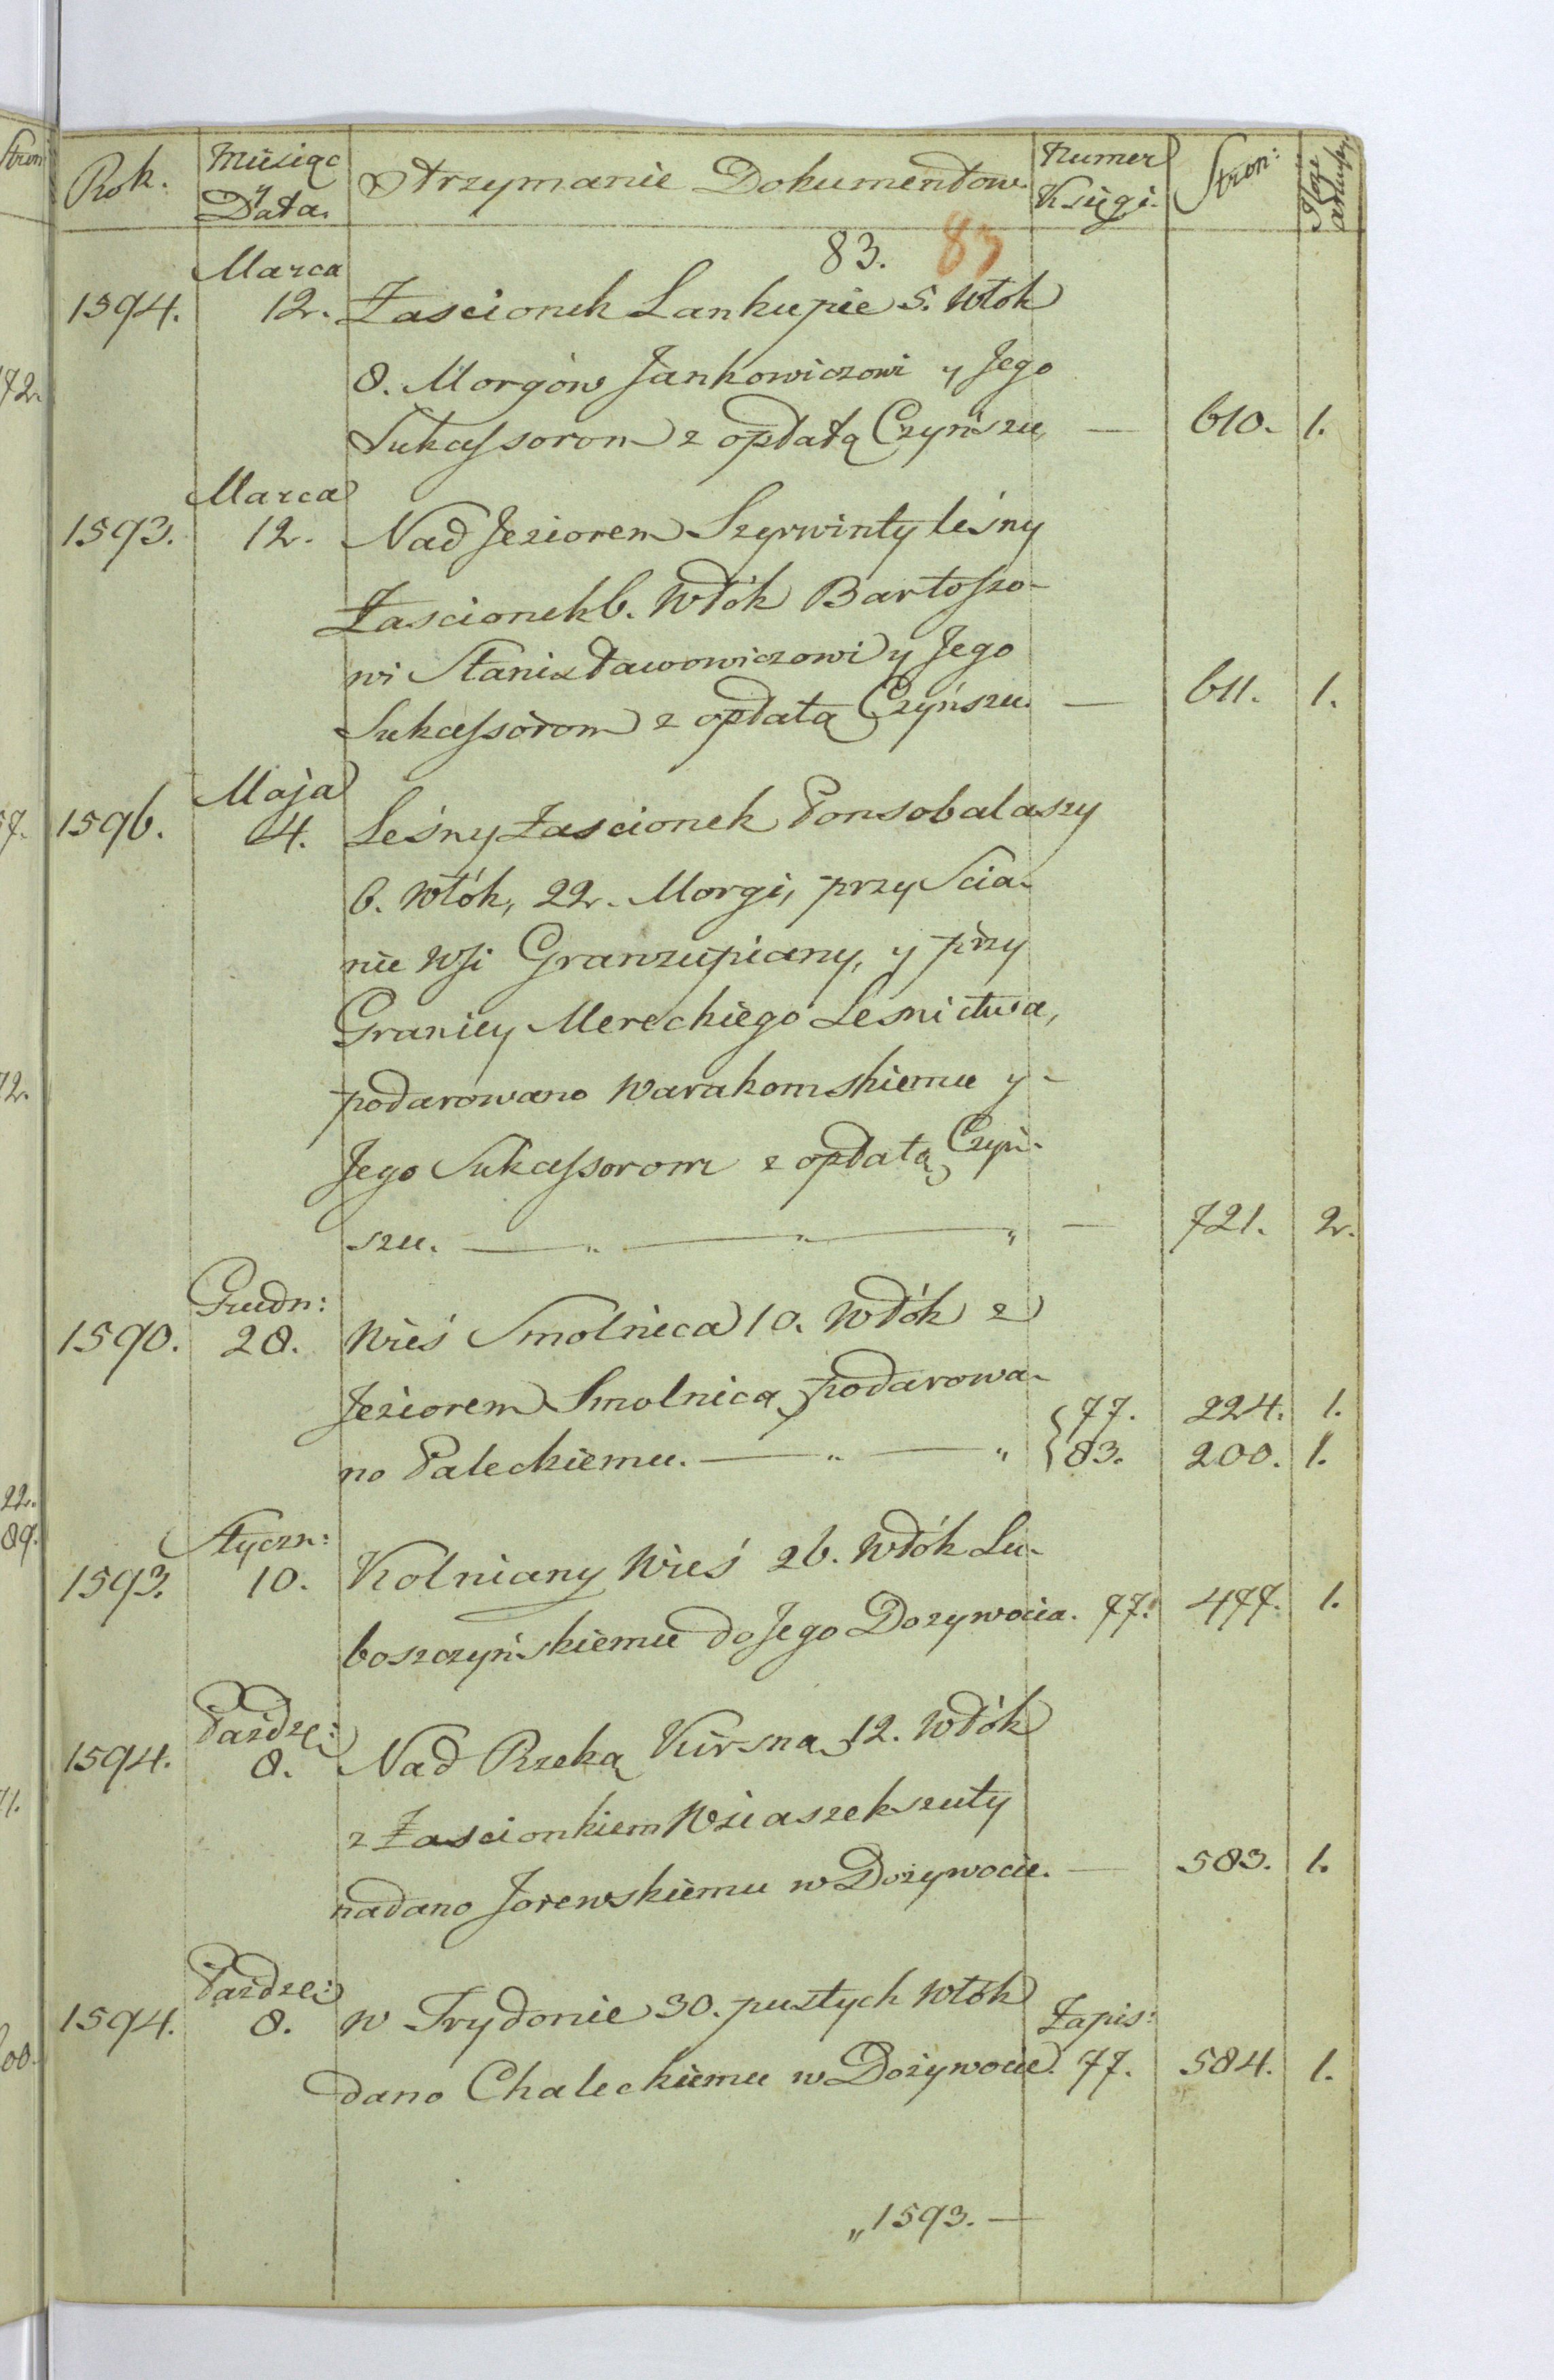 Rok. Miesiąc y Data. Otrzymanie Dokumentow. Numer Księgi. Stron:
83. 83
Marca
1594. 12. Zascionek Lankupie 5. Włok
8. Morgów Jankowiczowi y Jego
Sukcessorom z opłatą Czynszu, — 610. 1.
Marca
1593. 12. Nad Jeziorem Szyrwinty leśny
Zascionek 6. Włók Bartoszo-
wi Stanisławowiczowi y Jego
Sukcessorom z opłatą Czyńszu. — 611. 1.
Maja
1596. 4. Leśny Zascionek Ponsobalaszy
6. Włók, 22. Morgi, przy Scia-
nie Wsi Granzupiany, y przy
Granicy Mereckiego Lesnictwa,
podarowano Warakomskiemu y-
Jego Sukcessorom z opłatą Czyń-
szu. — „ — „ — „ — 721. 2.
Grudn:
1590. 28. Wieś Smolnica 10. Włók z
Jeziorem Smolnica, podarowa-
no Paleckiemu. — „ — „ { 77. 224. 1.
{ 83. 200. 1.
Styczn:
1593. 10. Kolniany Wieś 26. Włók Lu-
boszczyńskiemu do Jego Dozywocia. 77. 477. 1.
Pazdze:
1594. 8. Nad Rzeką Kirsną 12. Włók
z Zascionkiem Wziaszekszuty
nadano Jorewskiemu w Dożywocie. — 583. 1.
Pazdze:
1594. 8. W Trydonie 30. pustych Włók Zapis:
dano Chaleckiemu w Dożywocie. 77. 584. 1.
„1593. —